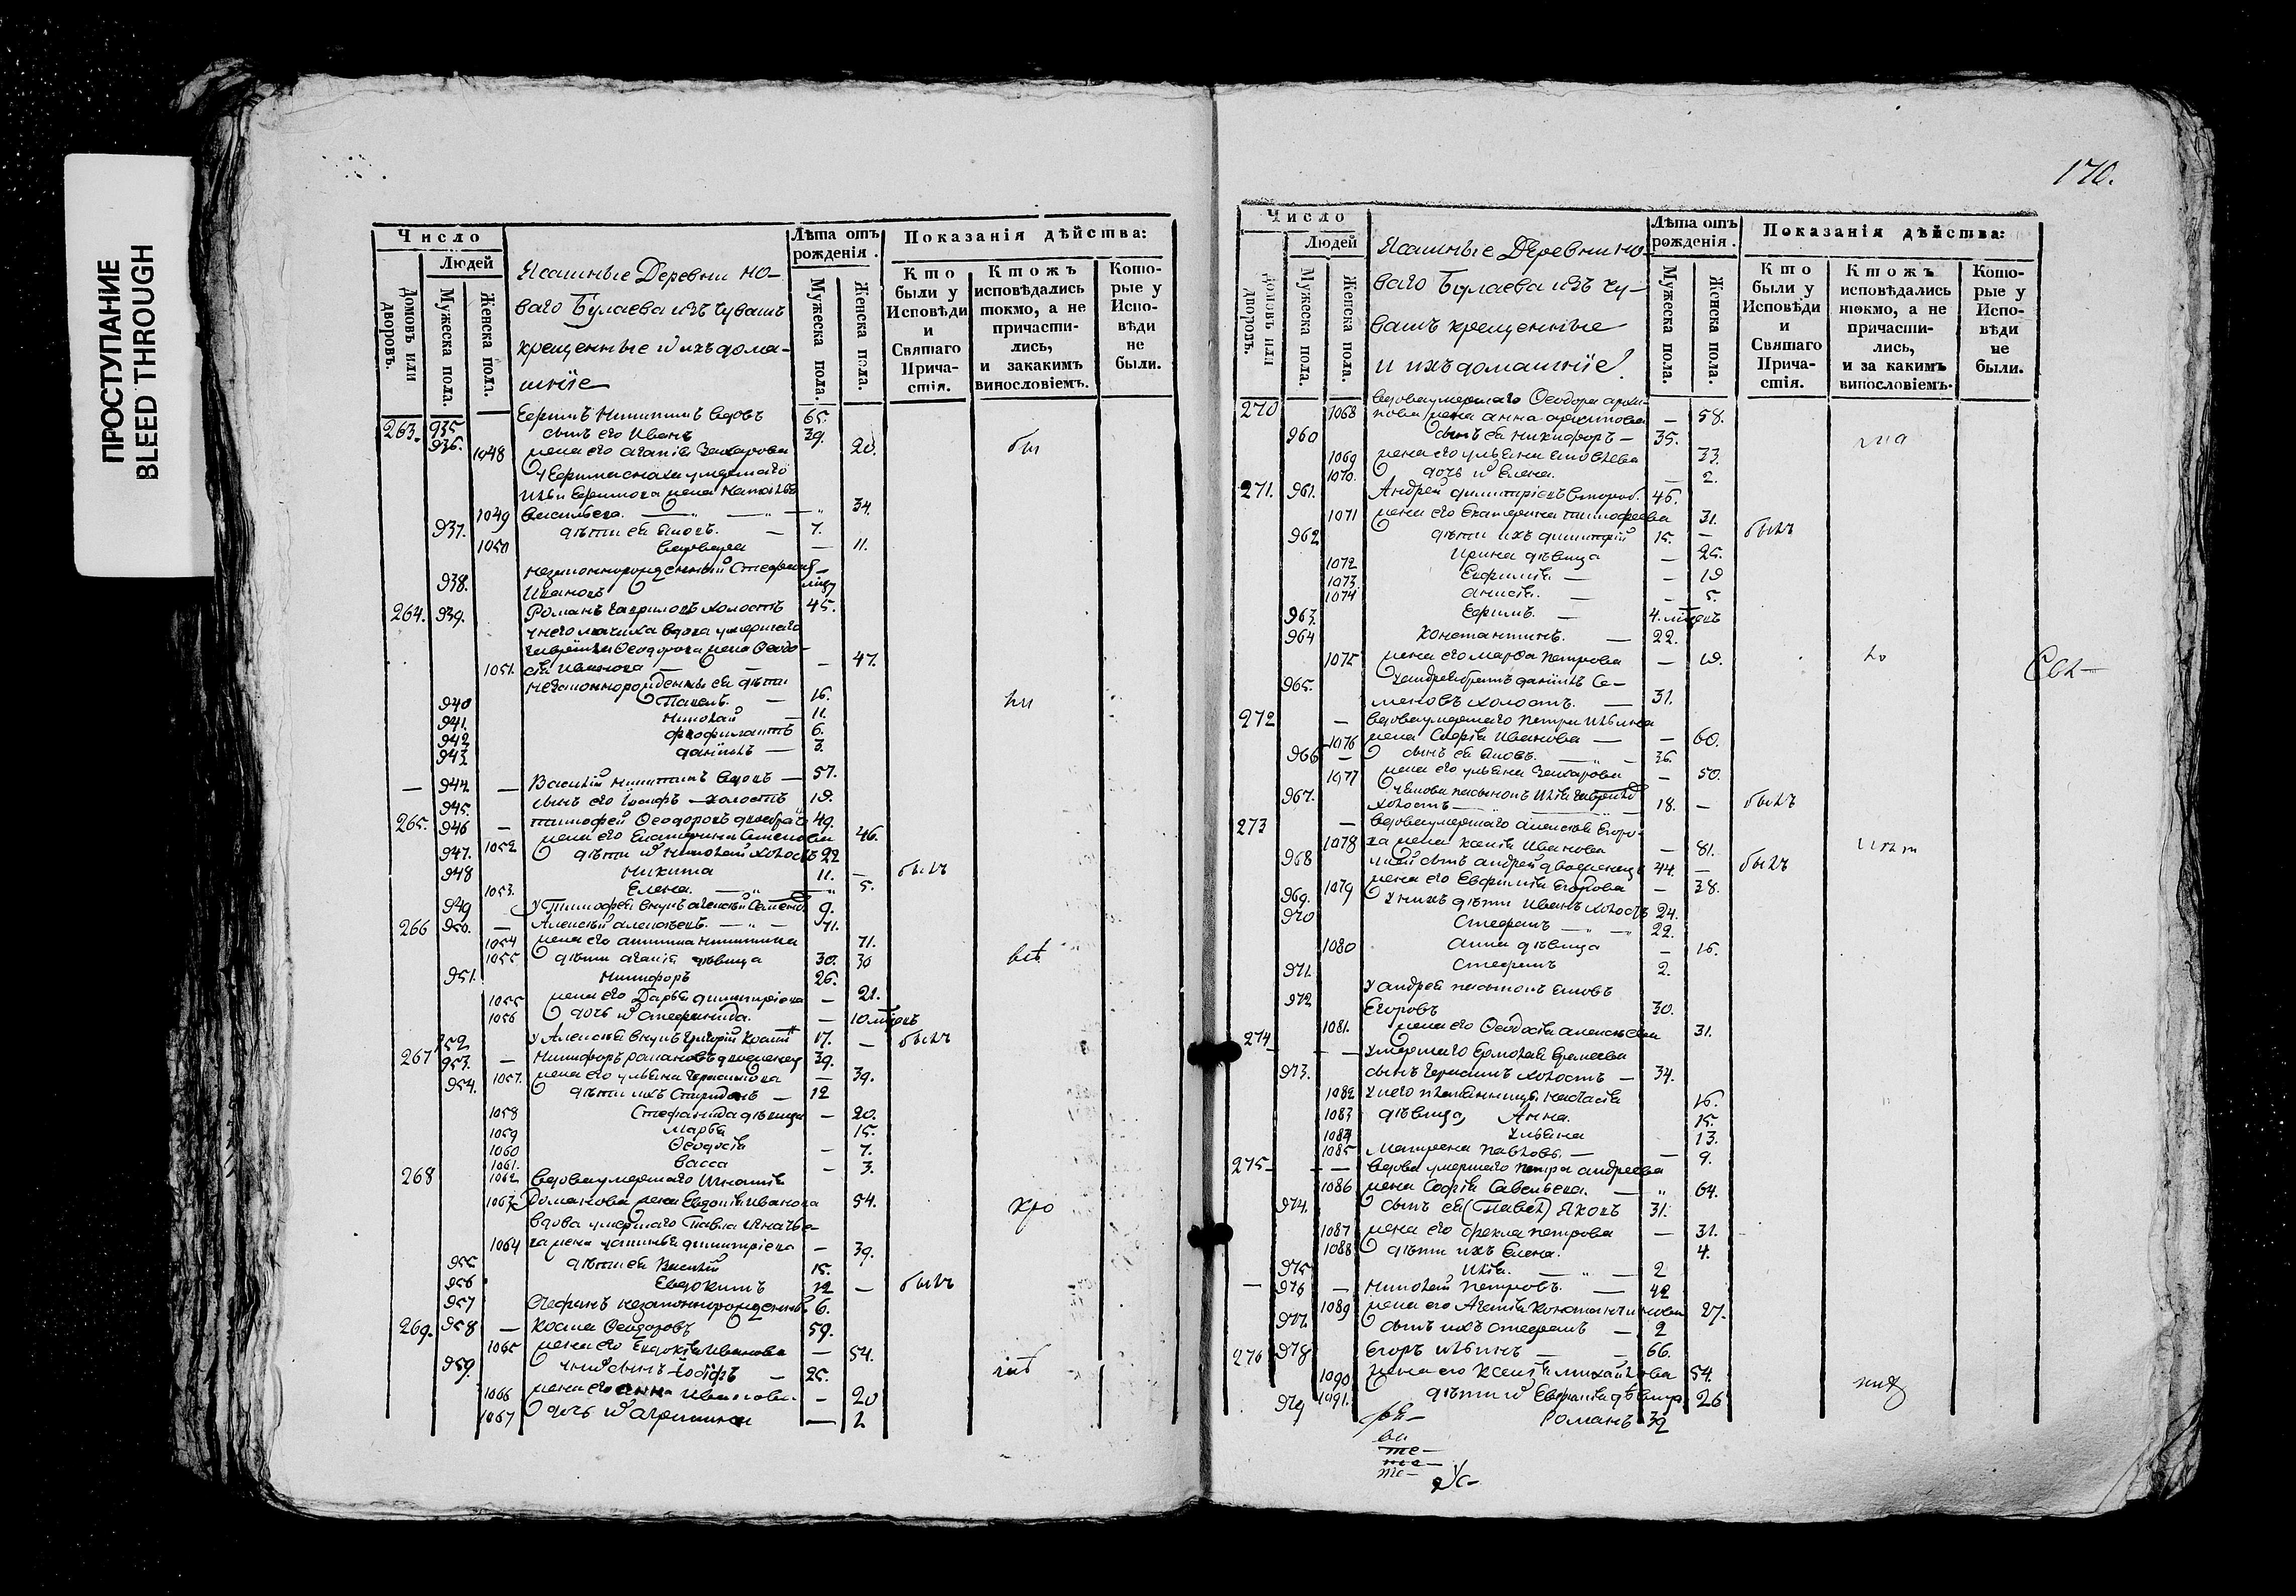 ПРОСТУПАНИЕ
BLEED THROUGH
170.
Число
Людей
Домовъ или дворовъ.
Мужеска пола.
Женска пола.
Ясашные Деревни но-
ваго Булаева изъ чувашъ
крещенные и ихъ дома-
шніе
Лѣта отъ рожденія.
Мужеска пола.
Женска пола.
Показанія дѣйства:
Кто были у Исповѣди и Святаго Прича-стія.
Ктожъ исповѣдались токмо, а не причасти-лись, и закакимъ винословіемъ.
Кото-рые у Испо-вѣди не были.
263. 935 Ефимъ Никитинъ вдовъ 65.
936. сынъ его Иванъ 39.
1048 жена его Агапія Захарова 20.
У Ефима сноха умершаго
Ильи Ефимова жена
1049 Васильева. 34.
937. дѣти ея Яковъ. 7.
1050 Варвара 11.
незаконнорожденный Стефанъ
938. Ивановъ
264. 939. Романъ Гавриловъ холостъ 45.
у него мачиха вдова умершаго
Гаврила Феодорова жена Феодо-
1051. сія Иванова 47.
незаконнорожденные ея дѣти
940 Павелъ. 16.
941. Николай 11.
942 Феофилактъ 6.
943 Даніилъ 3.
944. Василій Никитинъ вдовъ 57.
945. сынъ его Іосифъ холостъ 19.
265. 946 Тимофей Феодоровъ двоебрач 49.
1052 жена его Екатерина Семенова 46.
947. дѣти Николай холостъ 22
948 Никита 11. былъ
1053. Елена. 5.
949 У Тимофея внукъ Алексій Семенов 9.
266 950. Алексій Алексѣевъ. 71.
1054 жена его Никитина 71.
1055 дѣти Агапія дѣвица 30. 30
951. Никифоръ 26.
1055 жена его Дарья Димитріева 21.
1056 дочь Стефанида. 10 мѣсяцъ
952 У Алексѣя внукъ Григорій 17. былъ
267 953. Никифоръ Романовъ двоеженецъ 39.
1057. жена его Ульяна Герасимова 39.
954. дѣти ихъ Спиридонъ 12
1058 Стефанида дѣвица 20.
1059 Марѳа 15.
1060 Феодосія 7.
1061. Васса 3.
268 1062 Вдова умершаго Игнатія
1063 Романова жена Евдокія Иванова 54.
вдова умершаго Павла Игнатье-
1064 ва жена Димитріева 39.
955. дѣти ея Василій 15.
956 Евдокимъ 12 былъ
957 Стефанъ незаконнорожденный 6.
269. 958 Косма Феодоровъ 59.
1065 жена его Евдокія Иванова 54.
959. у нихъ сынъ Іосифъ 25.
1066 жена его Анна Иванова 20
1067 дочь Агрипина 2
Число
Людей
Домовъ или дворовъ.
Мужеска пола.
Женска пола.
Ясашные Деревни но-
ваго Булаева изъ чу-
вашъ крещенные
и ихъ домашніе
Лѣта отъ рожденія.
Мужеска пола.
Женска пола.
Показанія дѣйства:
Кто были у Исповѣди и Святаго Прича-стія.
Ктожъ исповѣдались токмо, а не причасти-лись, и за какимъ винословіемъ.
Кото-рые у Испо-вѣди не были.
270 Вдова умершаго Феодора Архи-
1068 пова жена Анна Архипова 58.
960 сынъ ея Никифоръ 35.
1069 жена его Ульяна Яковлева 33.
1070. дочь Елена. 2.
271. 961. Андрей Димитріевъ второб. 46.
1071 жена его Екатерина Тимофеева 31.
962 дѣти ихъ Димитрій 15. былъ
1072 Ирина дѣвица 25.
1073 Евфимія 19
1074 Анисія. 5.
963. Ефимъ. 4. мѣсецъ
964 Константинъ. 22.
1075 жена его Марѳа Петрова 19.
965. У Андрея братъ Даніилъ Се-
меновъ холостъ. 31.
272 Вдова умершаго Петра Ильина
1076 жена Софія Иванова 60.
966 сынъ ея Яковъ. 36.
1077 жена его Ульяна Захарова 50.
967. У Якова пасынокъ Илія Гавриловъ
холостъ 18. былъ
273 Вдова умершаго Алексѣя Егоро-
1078 ва жена Ксенія Иванова 81.
968 сынъ Андрей двоеженецъ 44. былъ
1079 жена его Евфимія Егорова 38.
969. У нихъ дѣти Иванъ холостъ 24.
970 Стефанъ 22.
1080 Анна дѣвица 16.
971. Стефанъ 2.
У Андрея пасынокъ Яковъ
972 Егоровъ 30.
1081. жена его Феодосія Алексѣева 31.
274 умершаго Ермолая Еремеева
973. сынъ Герасимъ холостъ 34.
1082 У него племянница Настасія 16.
1083 дѣвица, Анна. 15.
1084 Ульяна 13.
1085 Матрена Павлова. 9.
275 Вдова умершаго Петра Андреева
1086 жена Софія Савельева. 64.
974. сынъ ея (Павелъ) Яковъ 31.
1087 жена его Фекла Петрова 31.
1088 дѣти ихъ Елена. 4.
975 Илія. 2
976 Николай Петровъ. 42
1089 жена его Агапія Константинова 27.
977. сынъ ихъ Стефанъ 2
276 978 Егоръ Ильинъ 66.
1090 жена его Ксенія Михайлова 54.
1091. дѣти Евфимія дѣвица 26
979 Романъ 32